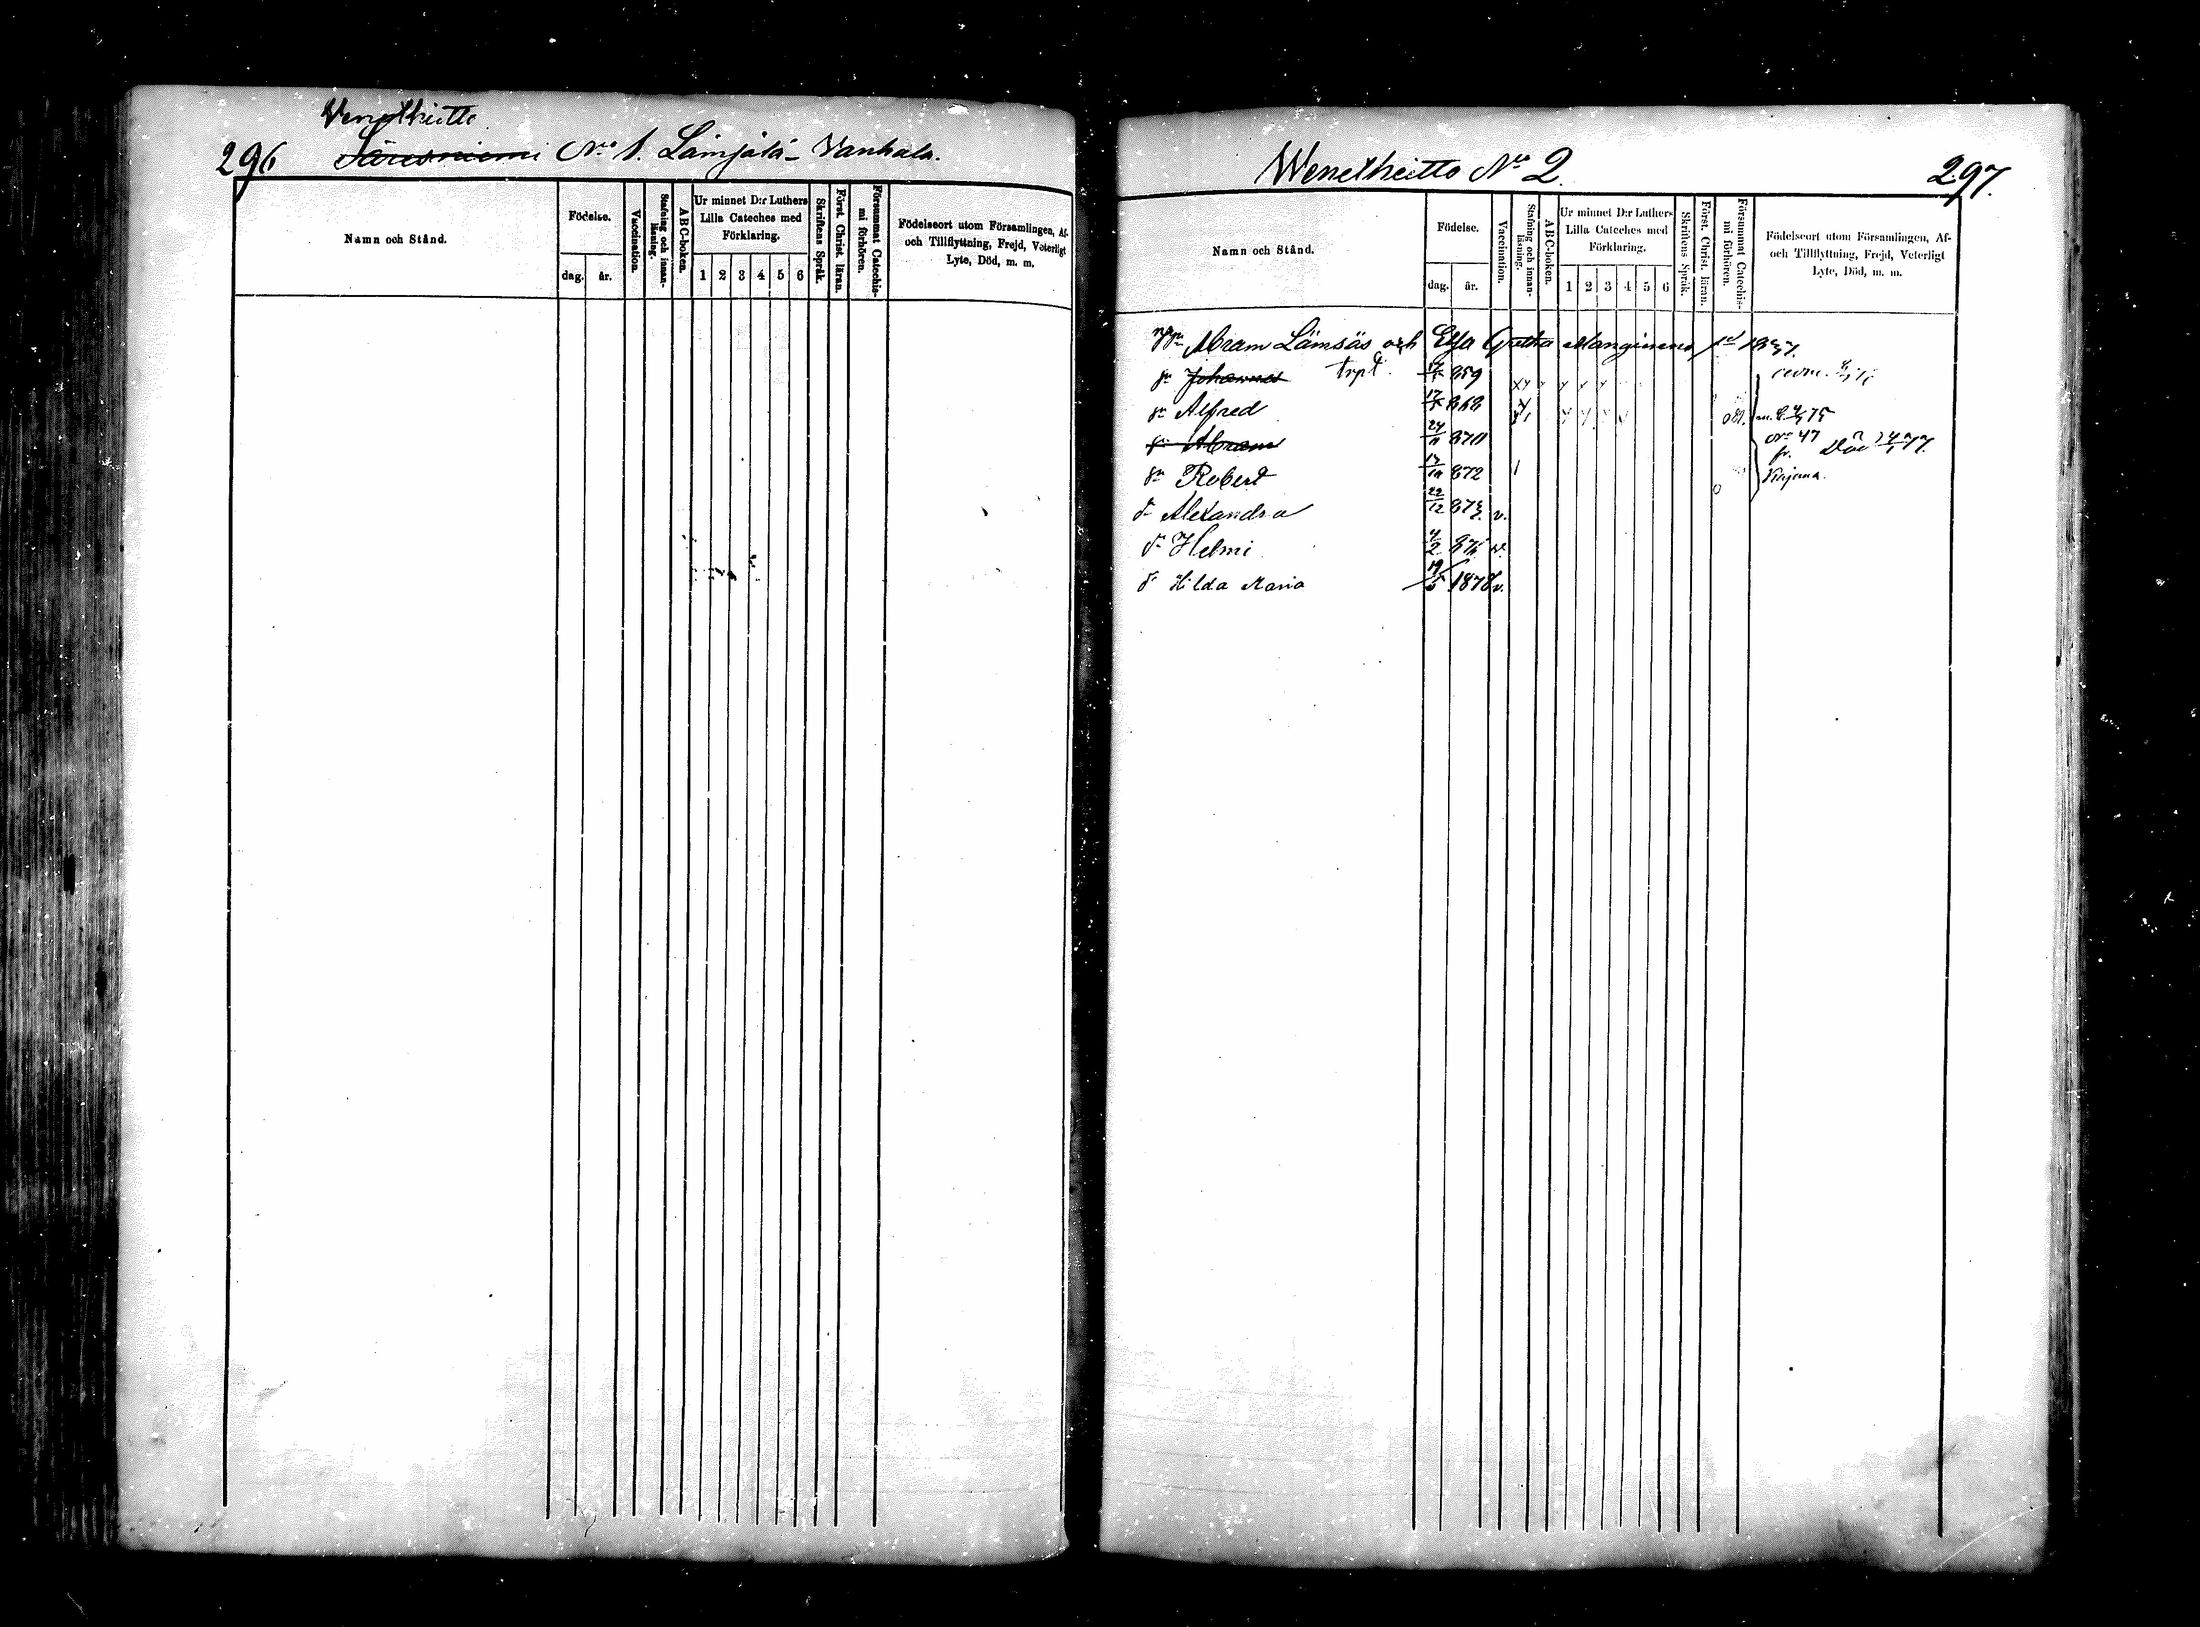 Venetheitto
296 Säresniemi No 1. Lämjälä - Vanhala.
Namn och Stånd.
Födelse.
dag. år.
Vaccination.
Stafning och innan-läsning.
ABC-boken.
Ur minnet D:r Luthers
Lilla Cateches med
Förklaring.
1 2 3 4 5 6
Skriftens Språk.
Först. Christ. läran.
Försummat Catechis-mi förhören.
Födelseort utom Församlingen, Af-
och Tillflyttning, Frejd, Veterligt
Lyte, Död, m. m.
Wenetheitto No 2. 297.
Namn och Stånd.
Födelse.
dag. år.
Vaccination.
Stafning och innan-läsning.
ABC-boken.
Ur minnet D:r Luthers
Lilla Cateches med
Förklaring.
1 2 3 4 5 6
Skriftens Språk.
Först. Christ. läran.
Försummat Catechis-mi förhören.
Födelseort utom Församlingen, Af-
och Tillflyttning, Frejd, Veterligt
Lyte, Död, m. m.
Abram Lämsäs och Elsa Gretha Manginens
sn Johannes 859
sn Alfred 868
sn Abram 24/11 870 No 47 Död
sn Robert 872 Kajana.
dr Alexandra 22/12 873 v.
dr Helmi 876 v.
dr Hilda Maria 19/5 1878 v.